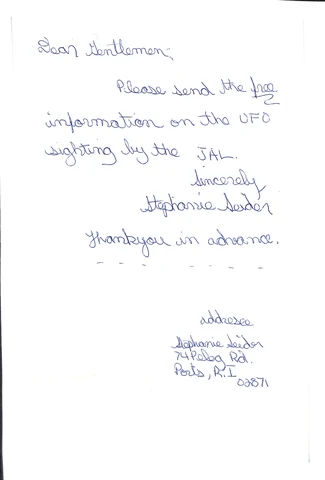 Dear Gentlemen;
Please send the free
information on the UFO
sighting by the JAL.
Sincerely
Stephanie Seider
Thankyou in advance.
addresee
Stephanie Seider
74 Peleg Rd.
Ports, R.I
02871